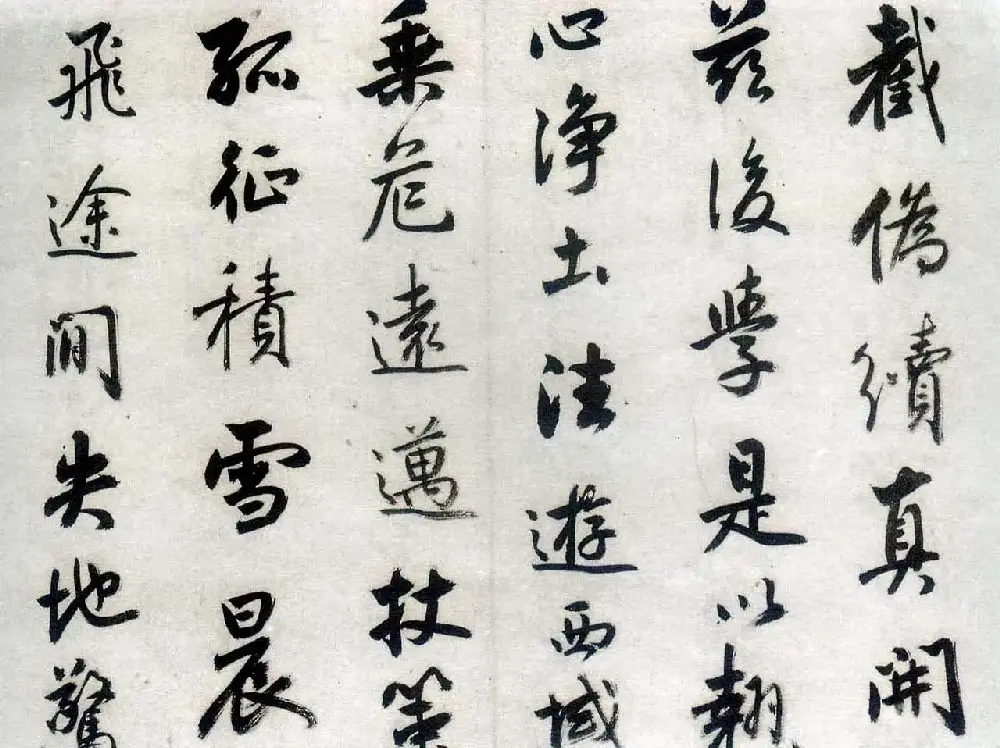 截偽續真開
茲後學是以翹
心淨土法遊西域
乘危遠邁杖策
孤征積雪晨
飛途間失地驚